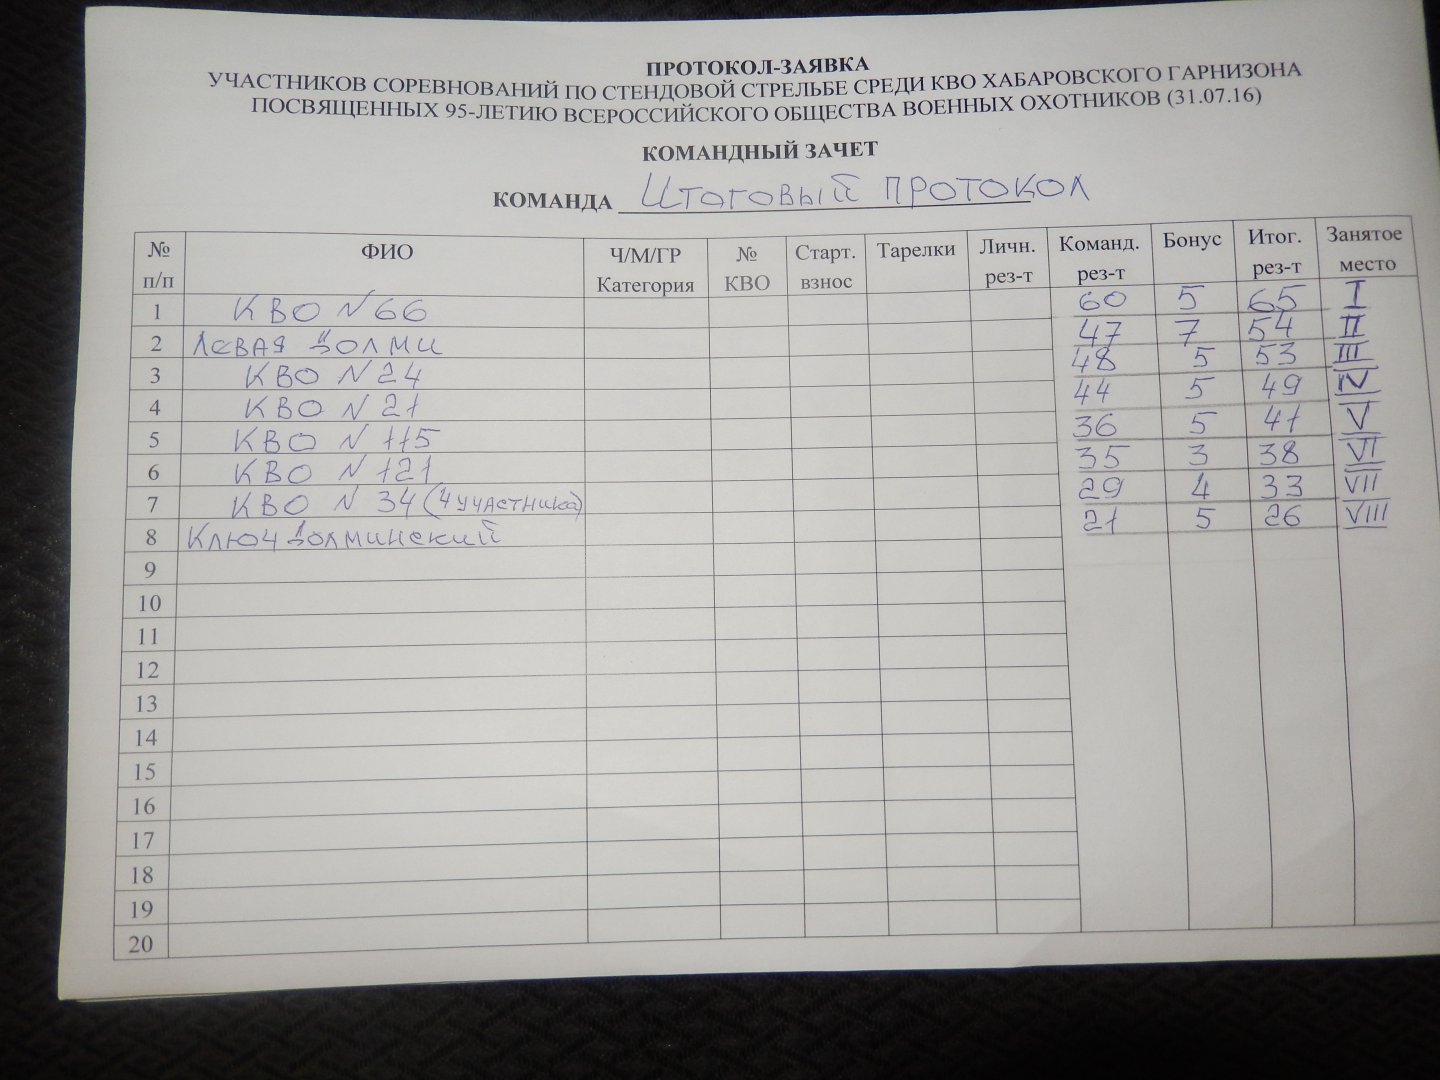 ПРОТОКОЛ-ЗАЯВКА
УЧАСТНИКОВ СОРЕВНОВАНИЙ ПО СТЕНДОВОЙ СТРЕЛЬБЕ СРЕДИ КВО ХАБАРОВСКОГО ГАРНИЗОНА
ПОСВЯЩЕННЫХ 95-ЛЕТИЮ ВСЕРОССИЙСКОГО ОБЩЕСТВА ВОЕННЫХ ОХОТНИКОВ (31.07.16)
КОМАНДНЫЙ ЗАЧЕТ
КОМАНДА Итоговый протокол
№ п/п ФИО Ч/М/ГР Категория № КВО Старт. взнос Тарелки Личн. рез-т Команд. рез-т Бонус Итог. рез-т Занятое место
1 КВО N 66 60 5 65 I
2 Левая Долми 47 7 54 II
3 КВО N 24 48 5 53 III
4 КВО N 21 44 5 49 IV
5 КВО N 115 36 5 41 V
6 КВО N 121 35 3 38 VI
7 КВО N 34 (4 участника) 29 4 33 VII
8 Ключ Долминский 21 5 26 VIII
9
10
11
12
13
14
15
16
17
18
19
20